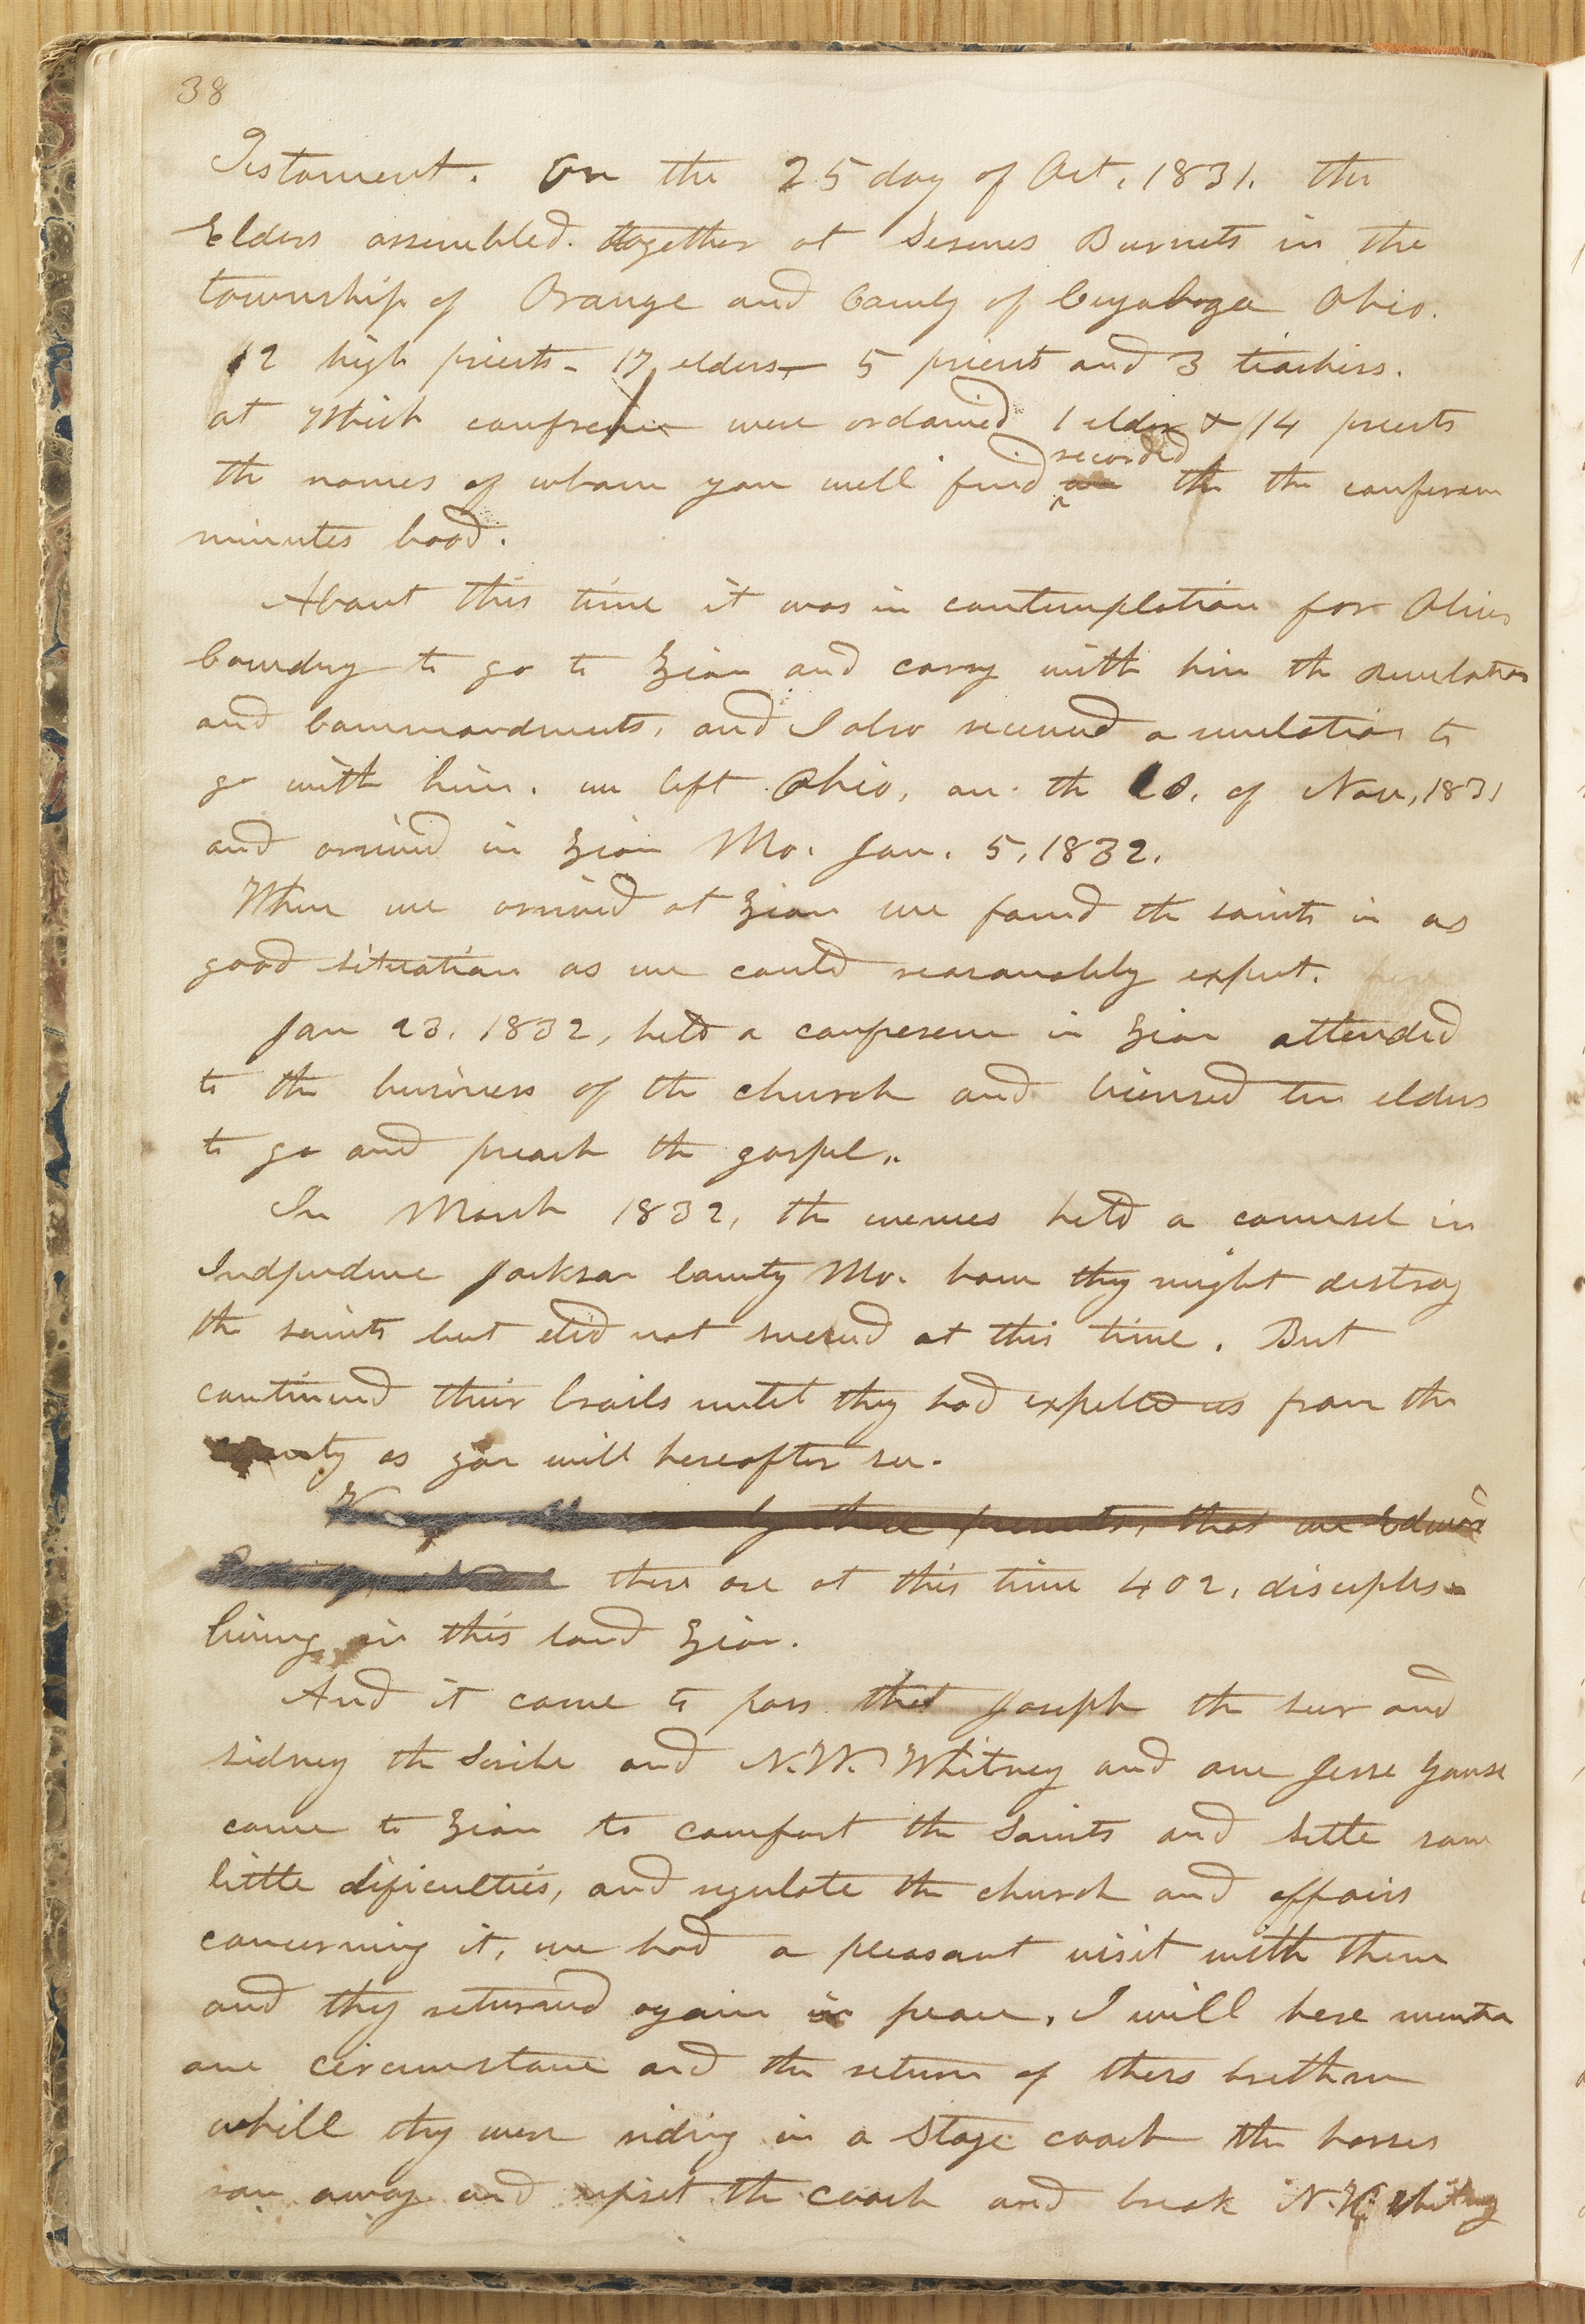 38
Testament. On the 25 day of Oct. 1831. the
Elders assembled. together at Sesenes Burnets in the
township of Orange and County of Cuyahoga Ohio.
12 high priests - 17 elders - 5 priests and 3 teachers.
at which confrence were ordained 1 elder & 14 priests
the names of whom you will find recorded the the conferenc
minutes bood.
About this time it was in contemplation for Oliver
Cowdry to go to Zion and carry with him the revelations
and Commandments, and I also received a revelation to
go with him. we left Ohio, on the 20. of Nov, 1831
and arrived in Zion Mo. Jan. 5, 1832.
When we arrived at Zion we found the saints in as
good situation as we could reasonably expect.
Jan 23. 1832, held a conference in Zion attended
to the business of the church and licensed ten elders
to go and preach the gospel.
In March 1832, the enemies held a counsel in
Independence Jackson County Mo. how they might destroy
the saints but did not succeed at this time. But
continued their broils until they had expelled us from the
county as you will hereafter see.
by these presents, that we Edward
there are at this time 402, disciples
living in this land Zion.
And it came to pass that Joseph the seer and
sidney the Scribe and N.W. Whitney and one Jesse Gause
came to Zion to comfort the Saints and settle some
little dificulties, and regulate the church and affairs
concerning it, we had a pleasant visit with them
and they returned again in peace. I will here mention
one circumstance and the return of thers brethren
whill they were riding in a stage coach the horses
ran away and upset the coach and break N.K. Whitney